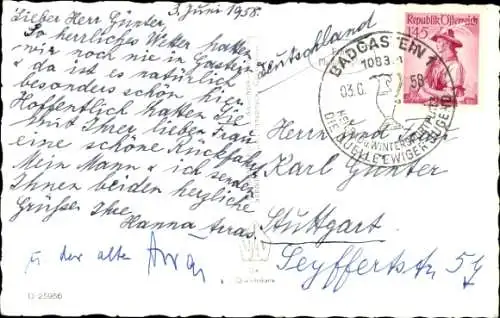 3. Juni 1958.
Lieber Herr Günter,
So herrliches Wetter hatten
wir noch nie in Gastein
u da ist es natürlich
besonders schön hier.
Hoffentlich hatten Sie
mit Ihrer lieben Frau
eine schöne Rückfahrt.
Mein Mann u ich senden
Ihnen beiden herzliche
Grüße Ihre
Hanna Arras.
u der alte Arras
D 25966
Deutschland
Republik Österreich
1.45
BADGASTEIN 1
03.6. 58
U. WINTERSPORTPLATZ
DIE QUELLE EWIGER JUGEND
Herrn und Frau
Karl Günter
Stuttgart
Seyfferstr. 54